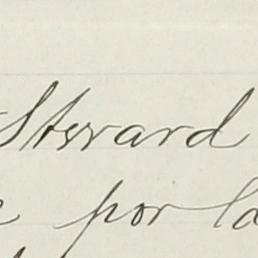 Sterard
por la